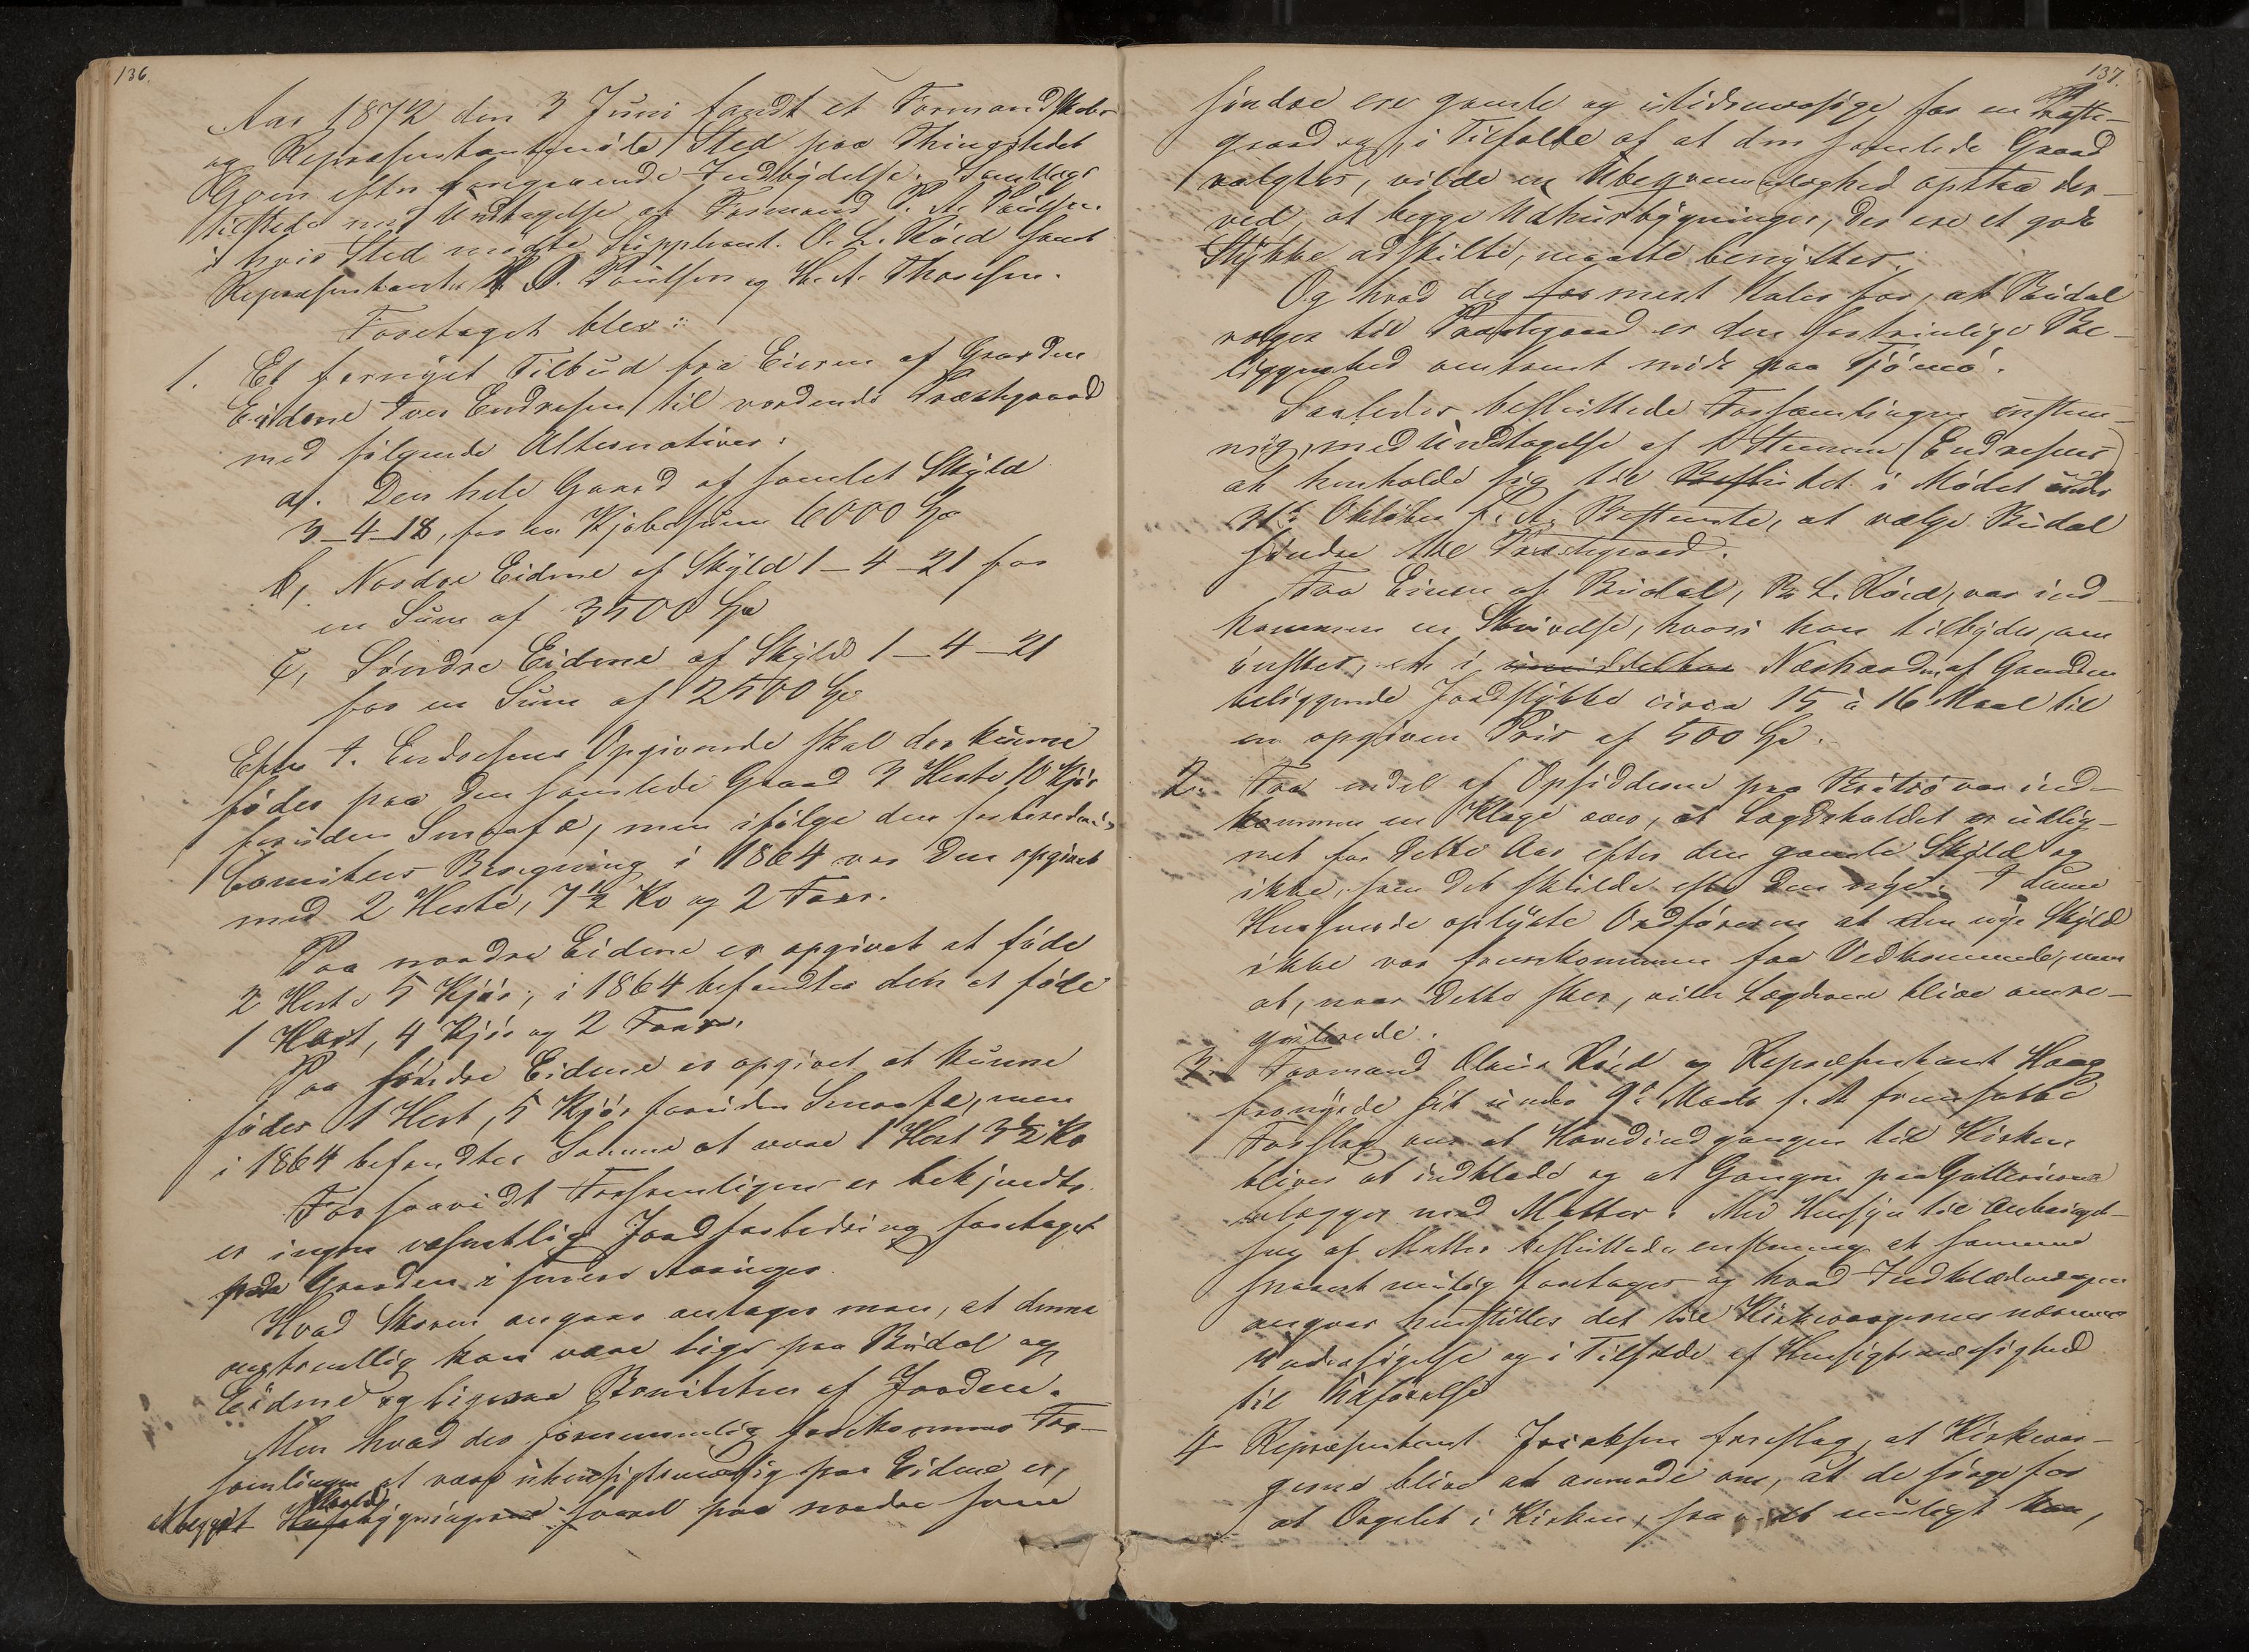 136.
Aar 1872 den 3 Juni fandt et Formandskabs
og Repræsentantmøde Sted paa Thingstedet
Gjøen efter foregaaende Indbydelse. Samtlige
tilstede med Undtagelse af Formand P. A. Paulsen
i hvis Sted mødte Suppleant. O. L. Röed samt
Repræsentanterne P. Paulsen og H. A. Thoresen.
Foretaget blev:
1. Et fornyet Tilbud fra Eieren af Gaarden
Eidene Iver Endresen til vordende Præstegaard
med følgende Alternativer:
a). Den hele Gaard af samlet Skyld
3-4-18, for en Kjøbesum 6000 Spd
b, Nordre Eidene af Skyld 1-4-21 for
en Sum af 3500 Spd
c, Søndre Eidene af Skyld 1-4-21
for en Sum af 2500 Spd
Efter I. Endresens Opgivende skal der kunne
födes paa den samlede Gaard 3 Heste 10 Kjør
foruden Smaafæ, men ifølge den forberedende
Comitees Beregning i 1864 var den opgivet
med 2 Heste, 7½ Ko og 2 Faar.
Paa nordre Eidene er opgivet at føde
2 Heste 5 Kjør; i 1864 befandtes den at føde
1 Hest, 4 Kjør og 2 Faar.
Paa søndre Eidene er opgivet at kunne
födes 1 Hest, 5 Kjør foruden Smaafæ, men
i 1864 befandtes Samme at være 1 Hest 3½ Ko
Forsaavidt Forsamlingen er bekjendt
er ingen væsentlig Jordforbedring foretaget
paa Gaarden i senere Aaringer.
Hvad Skoven angaar antages man, at denne
omtrentlig kan være lige paa Budal og
Eidene og ligesaa Boniteten af Jorden.
Men hvad der fornemmelig forekommer For-
samlingen at være uhensigtsmæssig paa Eidene er,
at begge Vaaningsbygningerne saavel paa nordre som
137.
søndre ere gamle og utidsmæssige for en Præste-
gaard og, i Tilfælde af at den samlede Gaard
valgtes, vilde en Ubekvemmelighed opstaa der-
ved, at begge Udhusbygninger, der ere et godt
Stykke adskilte, maatte benyttes.
Og hvad der for mest taler for, at Budal
vælges til Præstegaard er den fortrinlige Be-
liggenhed omtrent midt paa Tjømø.
Saaledes besluttede Forsamlingen enstem-
mig, med Undtagelse af 1 Stemme (Endresens)
at henholde sig til Beslutet i Mødet under
31te Oktober f. A. Bestemte, at vælge Budal
søndre til Præstegaard.
Fra Eieren af Budal, B. L. Röed, var ind-
kommen en Skrivelse, hvori han tilbyder, om
ønskes, et i umiddelbar Nærheden af Gaarden
beliggende Jordstykke circa 15 à 16 Maal til
en opgiven Pris af 500 Spd.
2. Fra endel af Opsidderne paa Brøtsø var ind-
kommen en Klage over, at Lægdsholdet er udlig-
net for dette Aar efter den gamle Skyld og
ikke, som det skulde efter den nye. I denne
Henseende oplyste Ordføreren at den nye Skyld
ikke var fremkommen fra Vedkommende, men
at, naar dette sker, ville Lægderne blive omre-
gulerede.
3. Formand Olaus Röed og Repræsentant Haag
fornyede sit under 9de Marts f. A fremsatte
Forslag om at Hovedindgangen til Kirken
bliver at indklæde og at Gangen paa Gallerierne
belægges med Matter. Med Hensyn til Anbringel-
sen af Matter besluttedes enstemmig at samme
snarest mulig foretages og hvad Indklædningen
angaar henstilles det til Kirkeværgernes nærmere
Undersøgelse og i Tilfælde af Hensigtsmæssighed
til Udførelse
4 Repræsentant Jacobsen foreslog, at Kirkevær-
gerne blive at anmode om, at de sørge for
at Orgelet i Kirken, saavidt muligt kan,